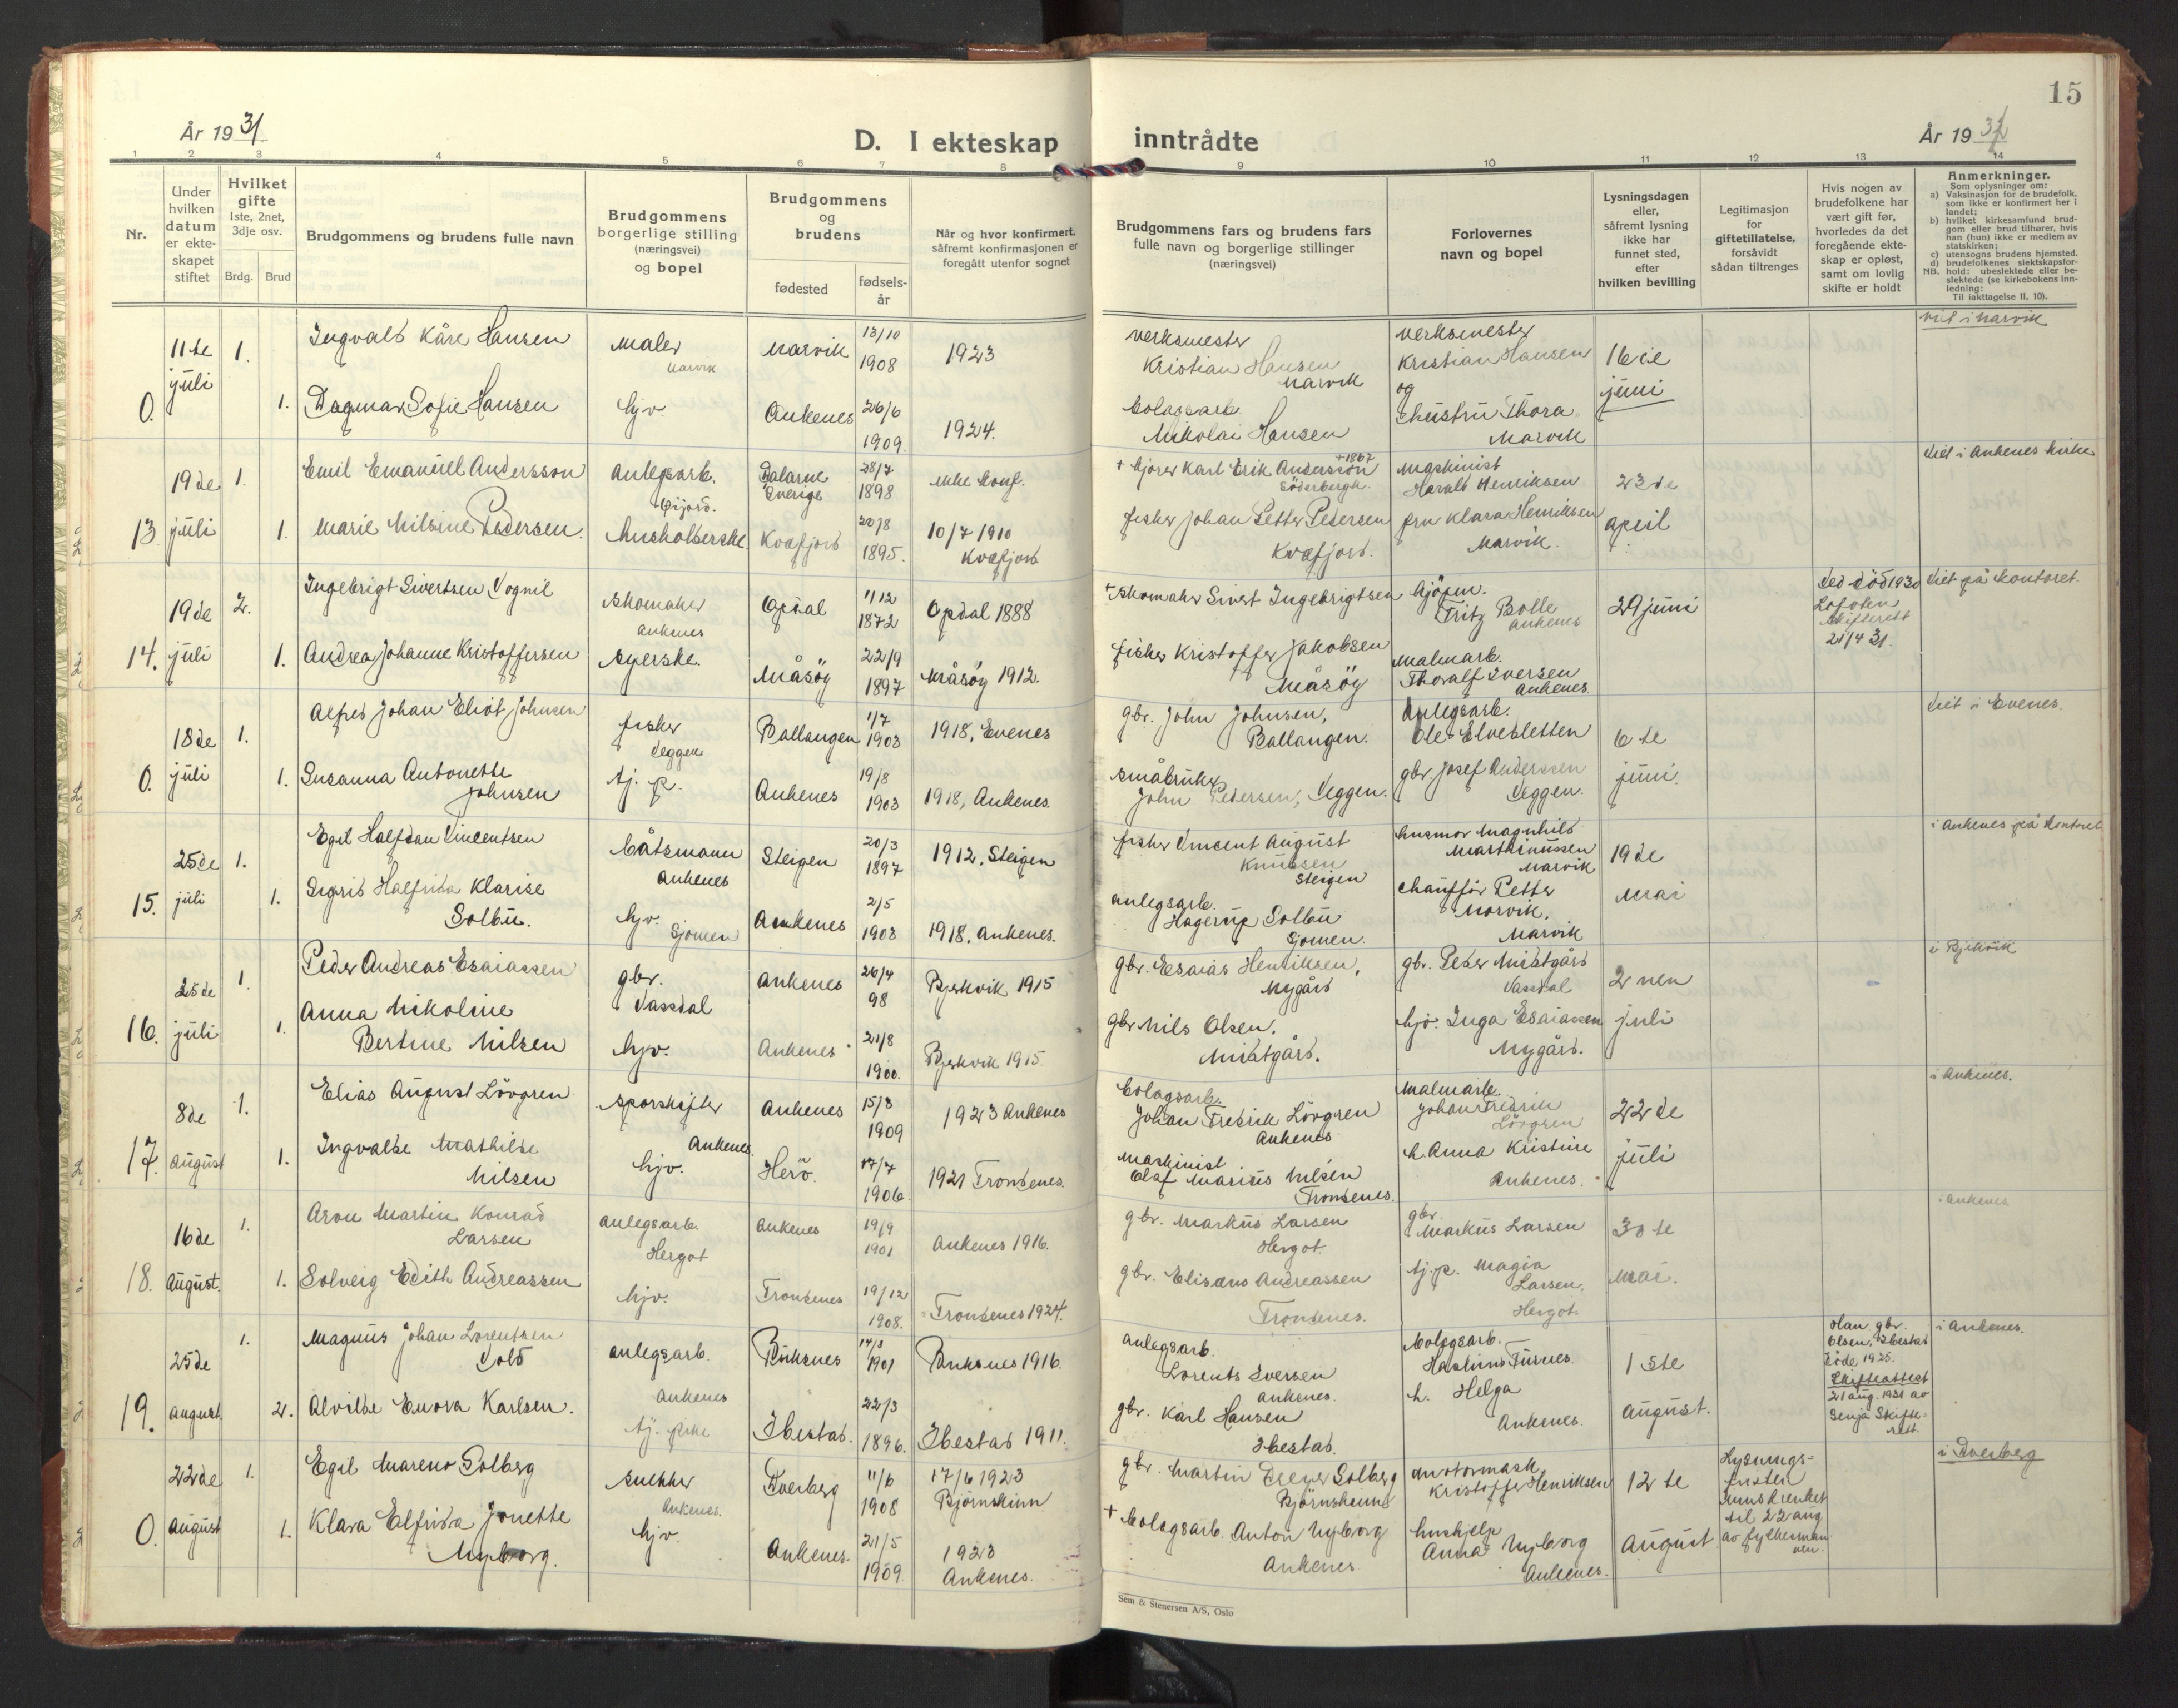 15
År 1931.
D. I ekteskap inntrådte
År 1931
1 2 3 4 5 6 7 8 9 10 11 12 13 14
Nr.
Under hvilken datum er ekteskapet stiftet
Hvilket gifte
1ste, 2net, 3dje osv.
Brdg. Brud
Brudgommens og brudens fulle navn
Brudgommens borgerlige stilling (næringsvei) og bopel
Brudgommens og brudens
fødested
fødselsår
Når og hvor konfirmert, såfremt konfirmasjonen er foregått utenfor sognet
Brudgommens fars og brudens fars fulle navn og borgerlige stillinger (næringsvei)
Forlovernes navn og bopel
Lysningsdagen eller, såfremt lysning ikke har funnet sted, efter hvilken bevilling
Legitimasjon for giftetillatelse, forsåvidt sådan tiltrenges
Hvis nogen av brudefolkene har vært gift før, hvorledes da det foregående ekteskap er opløst, samt om lovlig skifte er holdt
Anmerkninger.
Som oplysninger om:
a) Vaksinasjon for de brudefolk, som ikke er konfirmert her i landet;
b) hvilket kirkesamfund brudgom eller brud tilhører, hvis han (hun) ikke er medlem av statskirken;
c) utensogns brudens hjemsted.
d) brudefolkenes slektskapsforhold: ubeslektede eller beslektede (se kirkebokens innledning:
NB.
Til iakttagelse II, 10).
0. 11te juli 1. Ingvald Kåre Hansen Maler Narvik Narvik 13/10 1908 1923 Verksmester Kristian Hansen Narvik Verksmester Kristian Hansen og Thora Narvik 16de juni i Narvik
1. Dagmar Sofie Hansen hjv. Ankenes 26/6 1909. 1924. Bolagsarb. Nikolai Hansen
13 19de juli 1. Emil Emanuel Andersson anlegsarb. Dalarne Sverige 28/7 1898 ikke konf. + Karl Erik Andersson Söderbergh. 1867 Maskinist Harald Henriksen 23de april Viet i Ankenes kirke
1. Marie Nilsine Pedersen. Husholderske Kvæfjord 20/8 1895. 10/7 1910 Kvæfjord fisker Johan Petter Pedersen Kvæfjord. fru Klara Henriksen Narvik.
14. 19de juli 2. Ingebrigt Sivertsen Vognil skomaker Ankenes Opdal 1/12 1872 Opdal 1888 + skomaker Sivert Ingebrigtsen kjøpm. Fritz Bolle Ankenes 29 juni Ved död 1930 Lofoten skifterett 21/4 31. Viet på kontoret.
1. Andrea Johanne Kristoffersen syerske. Måsöy 22/9 1897 Måsöy 1912. fisker Kristoffer Jakobsen Måsöy Malmarb. Thoralf Iversen Ankenes.
0. 18de juli 1. Alfred Johan Eliot Johnsen fisker Veggen Ballangen 1/7 1903 1918, Evenes gbr. John Johnsen, Ballangen. Anlegsarb. Ole Elvebletten 6te juni. Viet i Evenes.
1. Susanna Antonette Johnsen tj. p. Ankenes 19/8 1903 1918, Ankenes. småbruker John Pedersen, Veggen. gbr. Josef Anderssen Veggen.
15. 25de juli 1. Egil Halfdan Vincentsen båtsmann Ankenes Steigen 20/3 1897 1912, Steigen fisker Vincent August Knudsen Steigen husmor Magnhild Marthinussen Narvik 19de mai i Ankenes på kontoret
1. Sigrid Halfrida Klarise Solbu. hjv. Sjomen Ankenes 2/5 1903 1918. Ankenes. anlegsarb. Hagerup Solbu Sjomen. chauffør Petter Norvik, Narvik
16. 25de juli 1. Peder Andreas Esaiassen gbr. Vassdal Ankenes 26/4 98 Bjerkvik 1915 gbr. Esaias Henriksen, Nygård gbr. Peder Midtgård Vassdal 2nen juli i Bjerkvik
1. Anna Nikoline Bertine Nilsen hjv. Ankenes 21/8 1900. Bjerkvik 1915. gbr Nils Olsen, Midtgård. hjv. Inga Esaiassen Nygård.
17. 8de august 1. Elias August Lövgren sporskifter Ankenes Ankenes 15/8 1909 1923 Ankenes bolagsarb. Johan Fredrik Lövgren Ankenes Malmarb. Johan Fredrik Lövgren 22de juli i Ankenes.
1. Ingvalde Mathilde Nilsen hjv. Herö. 17/7 1906. 1921 Trondenes. Maskinist Olaf Marius Nilsen Trondenes. h. Anna Kristine Ankenes.
18. 16de August. 1. Aron Martin Konrad Larsen anlegsarb. Hergot Ankenes 19/9 1901 Ankenes 1916. gbr. Markus Larsen Hergot. gbr. Markus Larsen 30te mai. i Ankenes.
1. Solveig Edith Andreassen hjv. Trondenes 19/12 1908. Trondenes 1924. gbr. Elisæus Andreassen Trondenes. tj. p. Magia Larsen, Hergot.
19. 25de august. 1. Magnus Johan Lorentsen Vold anlegsarb. Ankenes Buksnes 1901 Buksnes 1916. anlegsarb. Lorents Iversen Ankenes. bolagsarb. Furnes 1ste August. Han gbr. Olsen, Ibestad döde 1925. Skifteattest 21 aug. 1931 av Senja Skifterett. i Ankenes.
2. Alvilde Enora Karlsen. Ibestad. 22/3 1896. Ibestad 1911. gbr. Karl Hansen Ibestad. h. Helga Ankenes.
0. 22de August 1. Egil Mareno Solberg snekker Ankenes. Dverberg 11/6 1908 17/6 1923 Björnskinn gbr. Martin Solberg Björnskinn motormask. Kristoffer Henriksen 12te August Lysningsfristen innskrenket til 22 aug av fylkesmannen. i Dverberg
1. Klara Elfrida Jonette Nyborg. hjv. Ankenes. 21/5 1909. 1923 Ankenes. + bolagsarb. Anton Nyborg Ankenes hushjelp Anna Nyborg Ankenes.
Sem & Stenersen A/S, Oslo